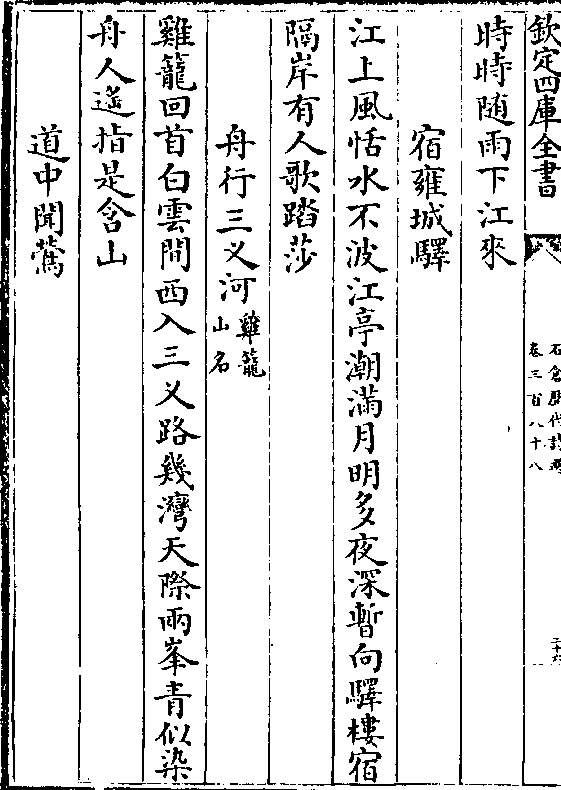 欽定四庫全書
石倉歷代詩選
卷三百八十八
二十六
時時随雨下江來
宿雍城驛
江上風恬水不波江亭潮滿月明多夜深暫向驛樓宿
隔岸有人歌踏莎
舟行三义河雞籠山名
雞籠回首白雲間西入三义路幾灣天際兩峯青似染
舟人遙指是含山
道中聞鶯